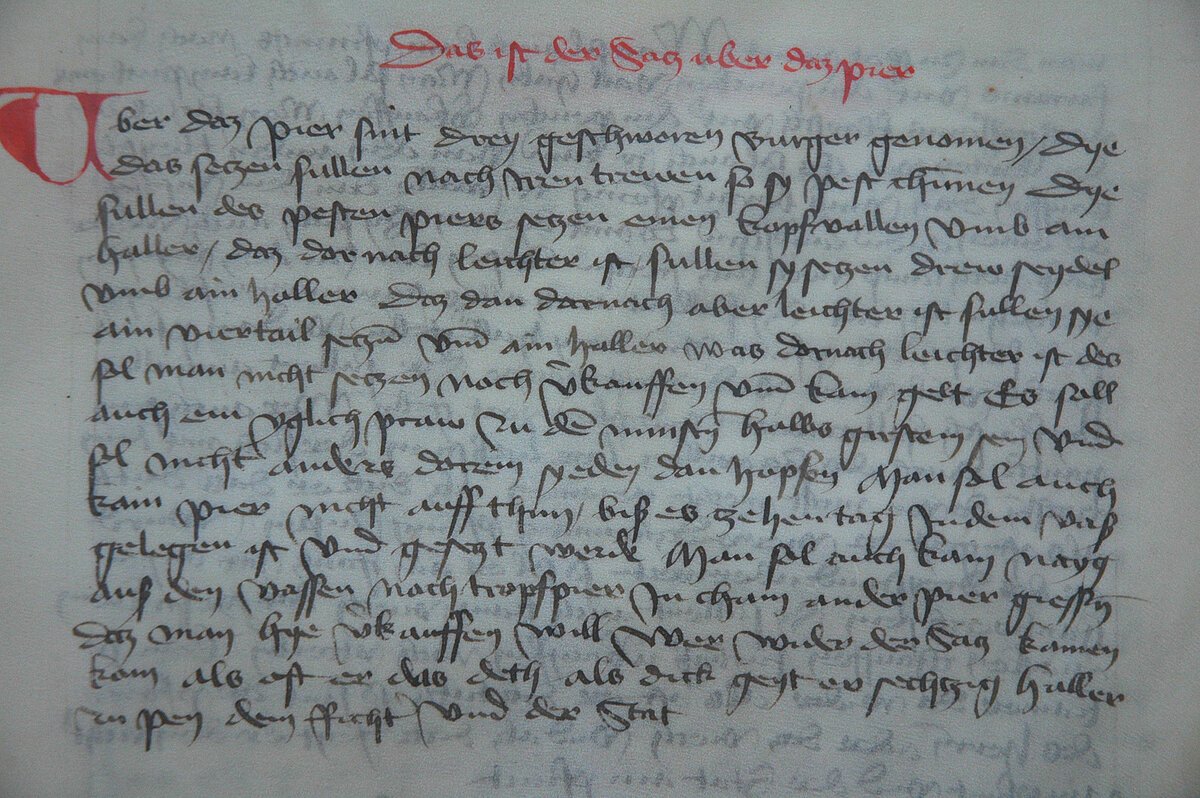 Das ist der Satz uber daz pier
Uber daz pier sint drey geschworen burger genomen / dye
das seczen sullen nach iren trewen so sy pest chūnnen dye
sullen des pesten piers seczen einen kopf vallen vmb ain
haller / daz dar nach leichter ist sullen sy seczen drew seydel
vmb ain haller daz dan darnach aber leichter ist sullen sye
ain viertail seczn̄ vm̄ ain haller was dornach leichter ist des
sol man nicht seczen noch v̈kauffen vm̄ kain gelt Es sall
auch ein yglich praw zu dē minstn̄ halbs gersten sey vnd
sol nicht anders dorein syeden dan hopfen Man sol auch
kain pier nicht auff thun / bis es zehen tag in dem vas
gelegen ist vnd geseczt werde Man sol auch kain nayg
aus den vassen noch tropfpier in chain ander pier giessn̄
daz man hye v̈kauffen will Wer wider der Sacz kainen
kom als oft er das deth als dick geyt er sechczig haller
zu pen dem fficht vnd der Stat